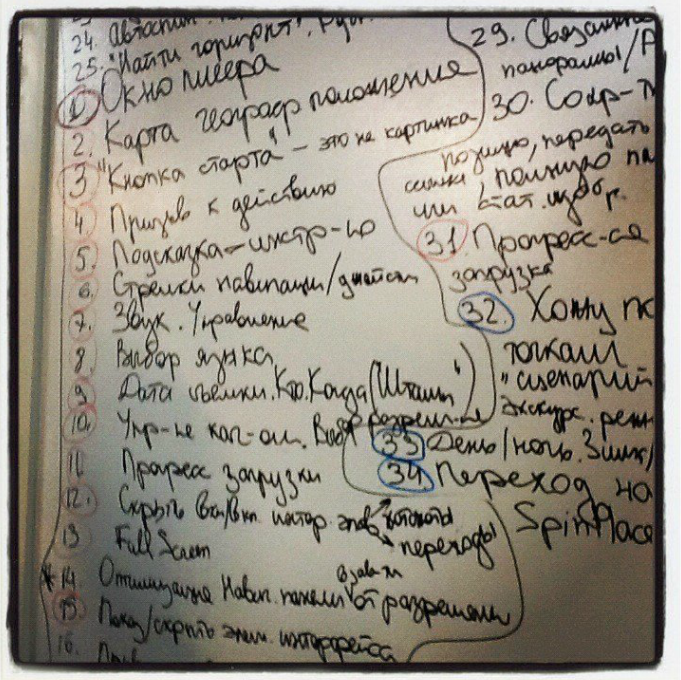 24. Автоспин.
25. "Найти горизонт".
1. Окно плеера
2. Карта географ положения
3. "Кнопка старта" – это не картинка
4. Призыв к действию
5. Подсказка – инстр-ю
6. Стрелки навигации/джойстик
7. Звук. Управление
8. Выбор языка
9. Дата съемки. Кто. Когда ("Штамп")
10. Упр-е кач-ом. Выбор разреш-ие
11. Прогресс загрузки
12. Скрыть Вкл/выкл. интер. элов хотспоты
переходы
13 Full Screen
*14. Оптимизация Навиг. панели в завис от разрешения
15. Показ/скрыть элем. интерфейса
16.
29.
панорамы/
30. Сохр-
позицию, передать
ссылки / полную
или стат. изобр.
31. Прогресс-ая
загрузка
32. Хожу по
точкам
"сценарий
экскурс.
33 День/ночь. Зима/
34. Переход на
SpinPlace